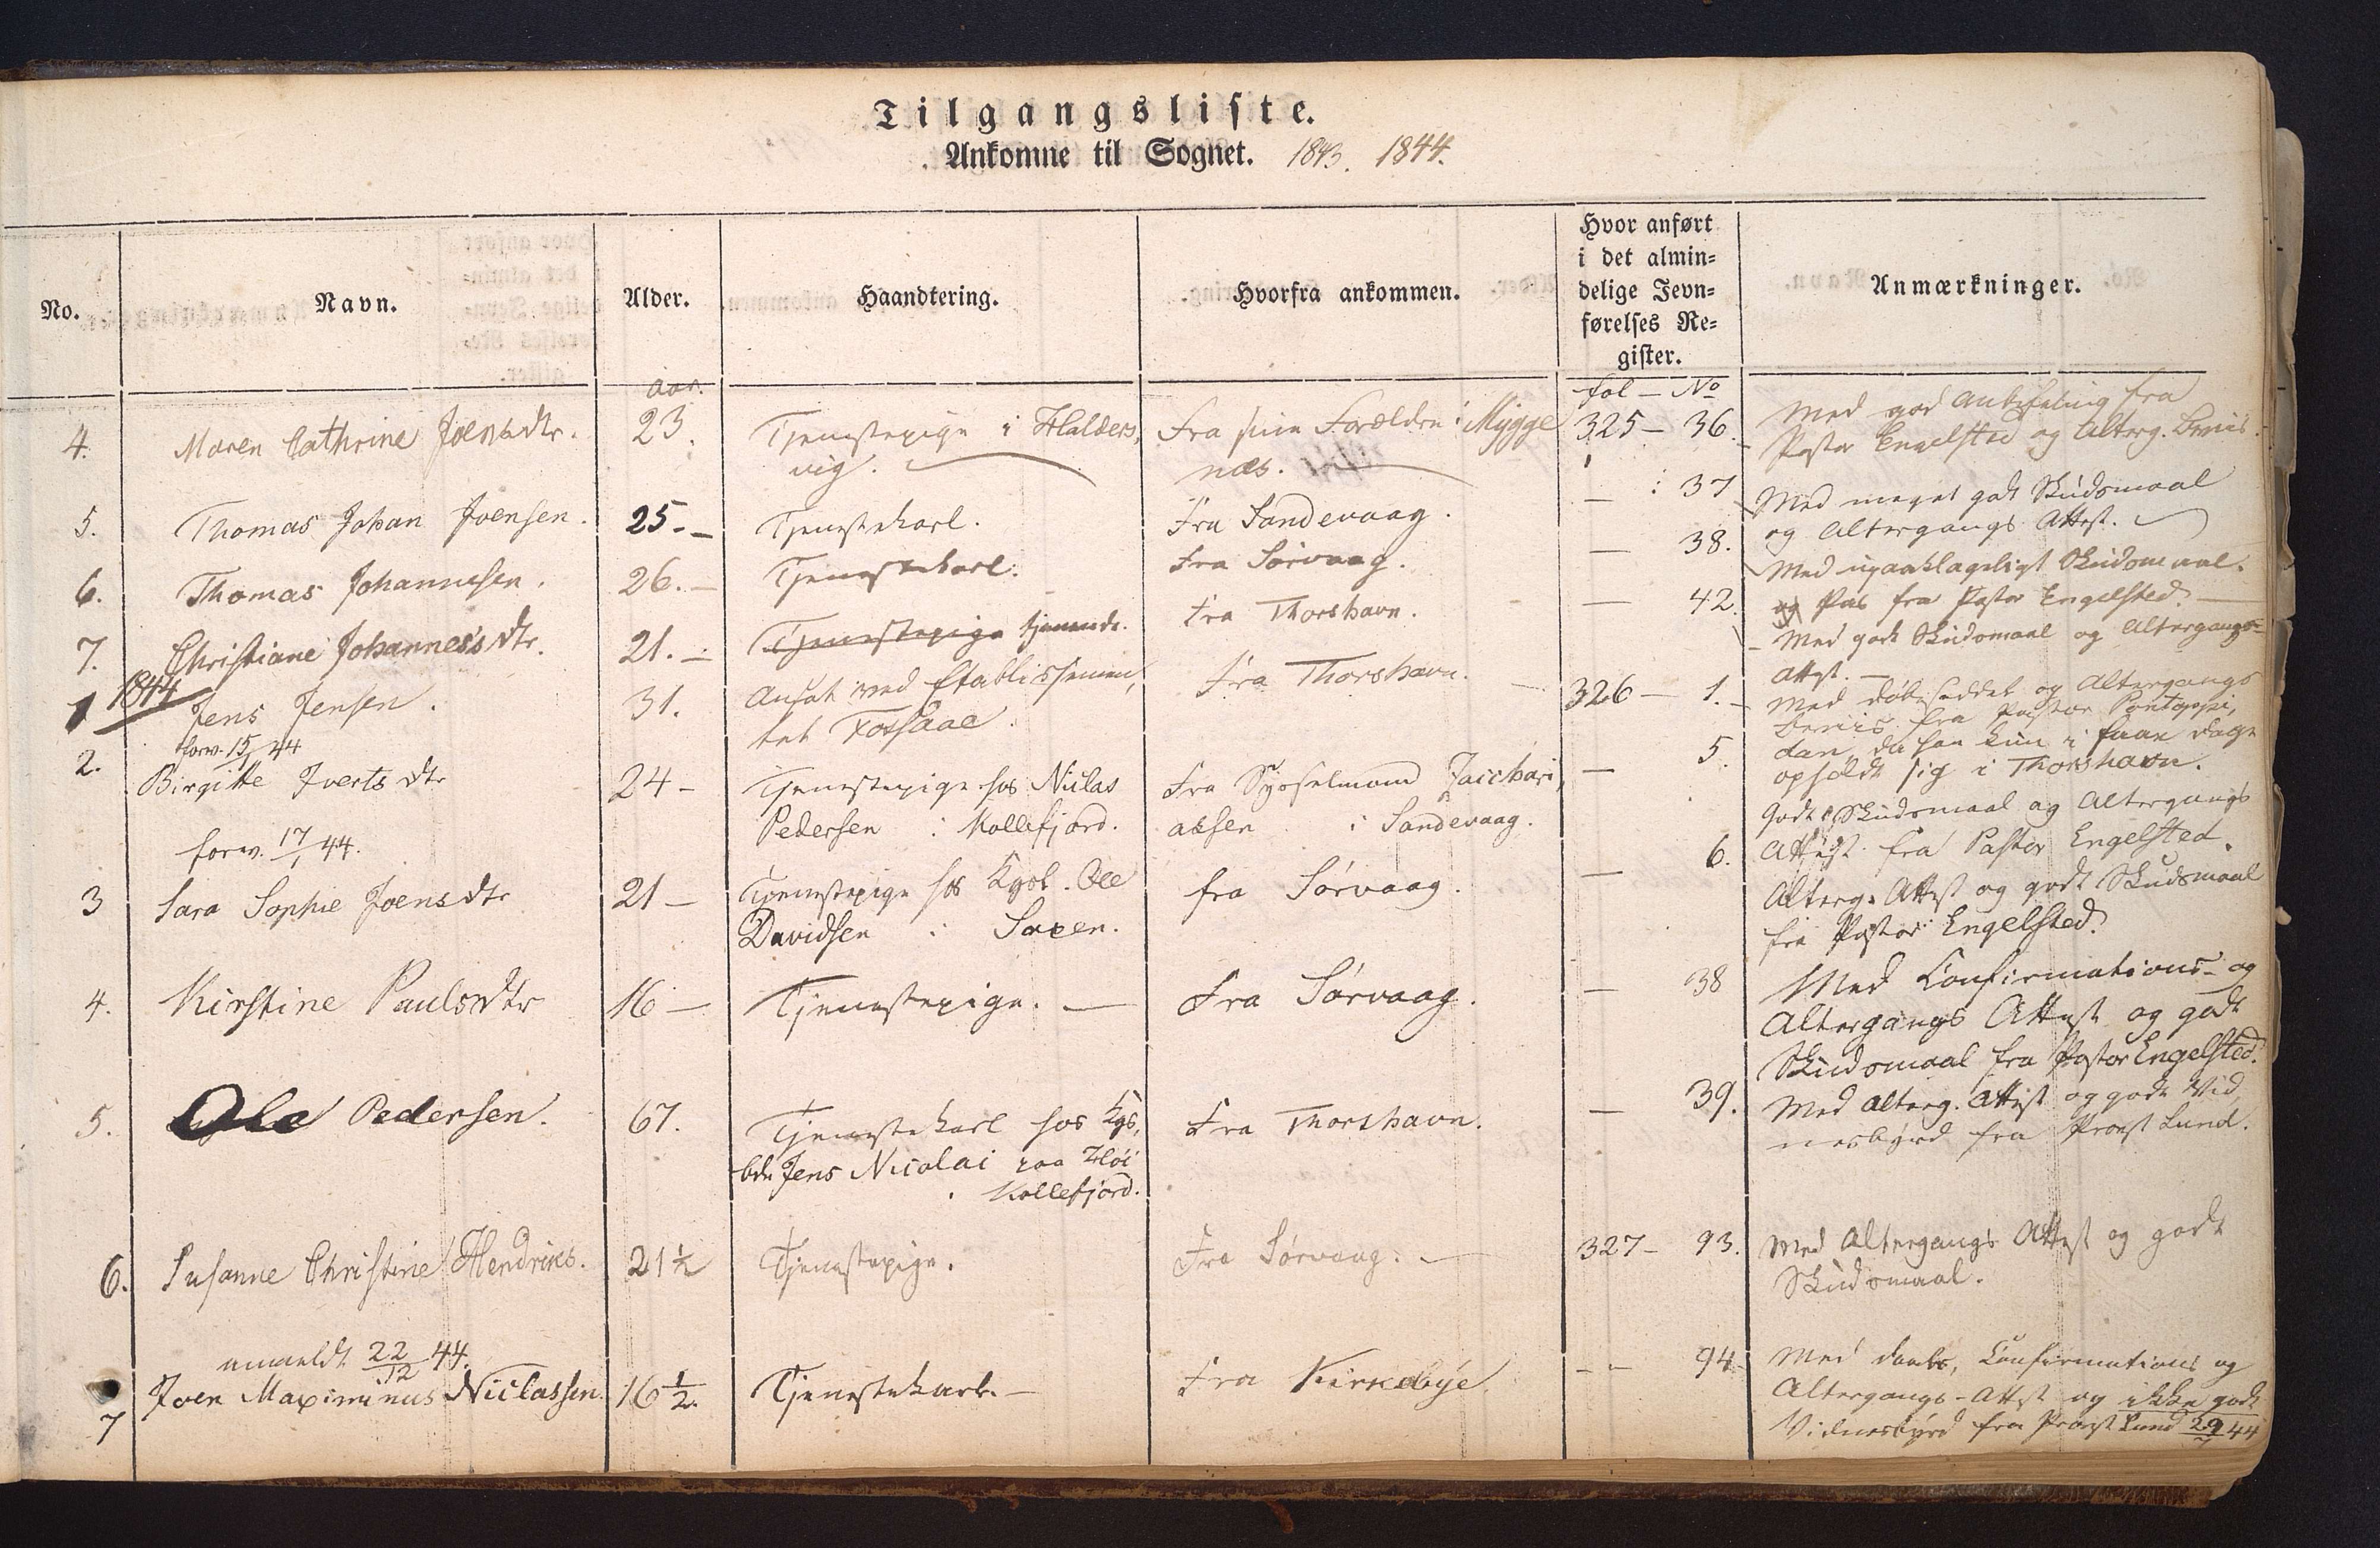 Tilgangsliste.
Ankomne til Sognet. 1843. 1844.
No. Navn. Alder. Haandtering. Hvorfra ankommen. Hvor anført i det almin= delige Jevn= førelses Re= gister. Anmærkninger.
Aar. fol - No
4. Maren Cathrine Joensdtr. 23. Tjenestepige i Halders, Fra sine Forældre i Mygge 325 - 36. Med god Anbefaling fra
vig. næs. Pastor Engelsted og Alterg. Beviis.
5. Thomas Johan Joensen. 25. - Tjenestekarl. Fra Sandevaag. — : 37 Med meget godt Skudsmaal
og Altergangs Attest.
6. Thomas Johannesen. 26. - Tjenestekarl. Fra Sørvaag. — 38. Med upaaklageligt Skudsmaal.
og Pas fra Pastor Engelsted.
7. Christiane Johannesdtr. 21. - Tjenestepige tjenende. Fra Thorshavn. — 42. Med godt Skudsmaal og Altergangs-
Attest. —
1844
1 Jens Jensen. 31. Ansat ved Etablissemen, Fra Thorshavn. 326 - 1. - Med Døbeseddel og Altergangs
tet Fossaae. Beviis fra Pastor Pontoppi,
dan, da han kun i faae Dage
opholdt sig i Thorshavn.
forev. 15/1 44
2. Birgitte Ivertsdtr 24 - Tjenestepige hos Niclas Fra Sysselmand Zacchari, — 5. Godt Skudsmaal og Altergangs
Pedersen i Kollefjord. assen i Sandevaag. Attest fra Pastor Engelsted.
forev. 17/1 44.
3 Sara Sophie Joensdtr 21 - Tjenestepige hos Kgsb. Ole fra Sørvaag. — 6. Alterg. Attest og godt Skudsmaal
Davidsen i Saxen. fra Pastor Engelsted.
4. Kirstine Paulsdtr 16 - Tjenestepige. — Fra Sørvaag. — 38 Med Confirmations- og
Altergangs Attest og godt
Skudsmaal fra Pastor Engelsted.
5. Ole Pedersen. 67. Tjenestekarl hos Kgs, Fra Thorshavn. — 39. Med Alterg. Attest og godt Vid,
bdr Jens Nicolai paa Høi nesbyrd fra Provst Lund.
i Kollefjord.
6. Susanne Christine Hendriks. 21 1/2 Tjenestepige. Fra Sørvaag. — 327 - 93. Med Altergangs Attest og godt
Skudsmaal.
anmeldt 22/12 44.
7 Joen Maximinus Niclassen. 16 1/2. Tjenestekarl. — Fra Kirkebye. - - 94 - Med Daabs, Confirmations og
Altergangs-Attest og ikke godt
Vidnesbyrd fra Provst Lund 29 44